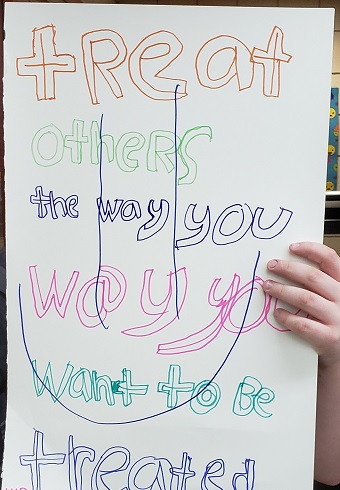 treat
others
the way you
w@y you
want to Be
treated